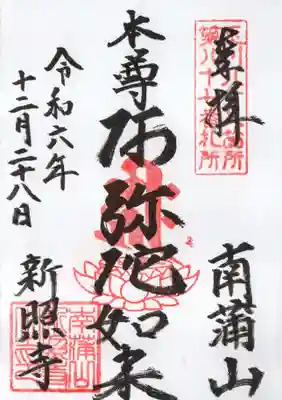 奉拝
南蒲山
本尊
阿弥陀如来
令和六年
十二月二十八日
新照寺
第八十七番札所
南蒲山